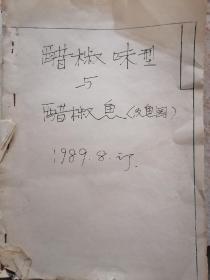 醋椒味型
与
醋椒鱼(改良菌)
1989.8.订